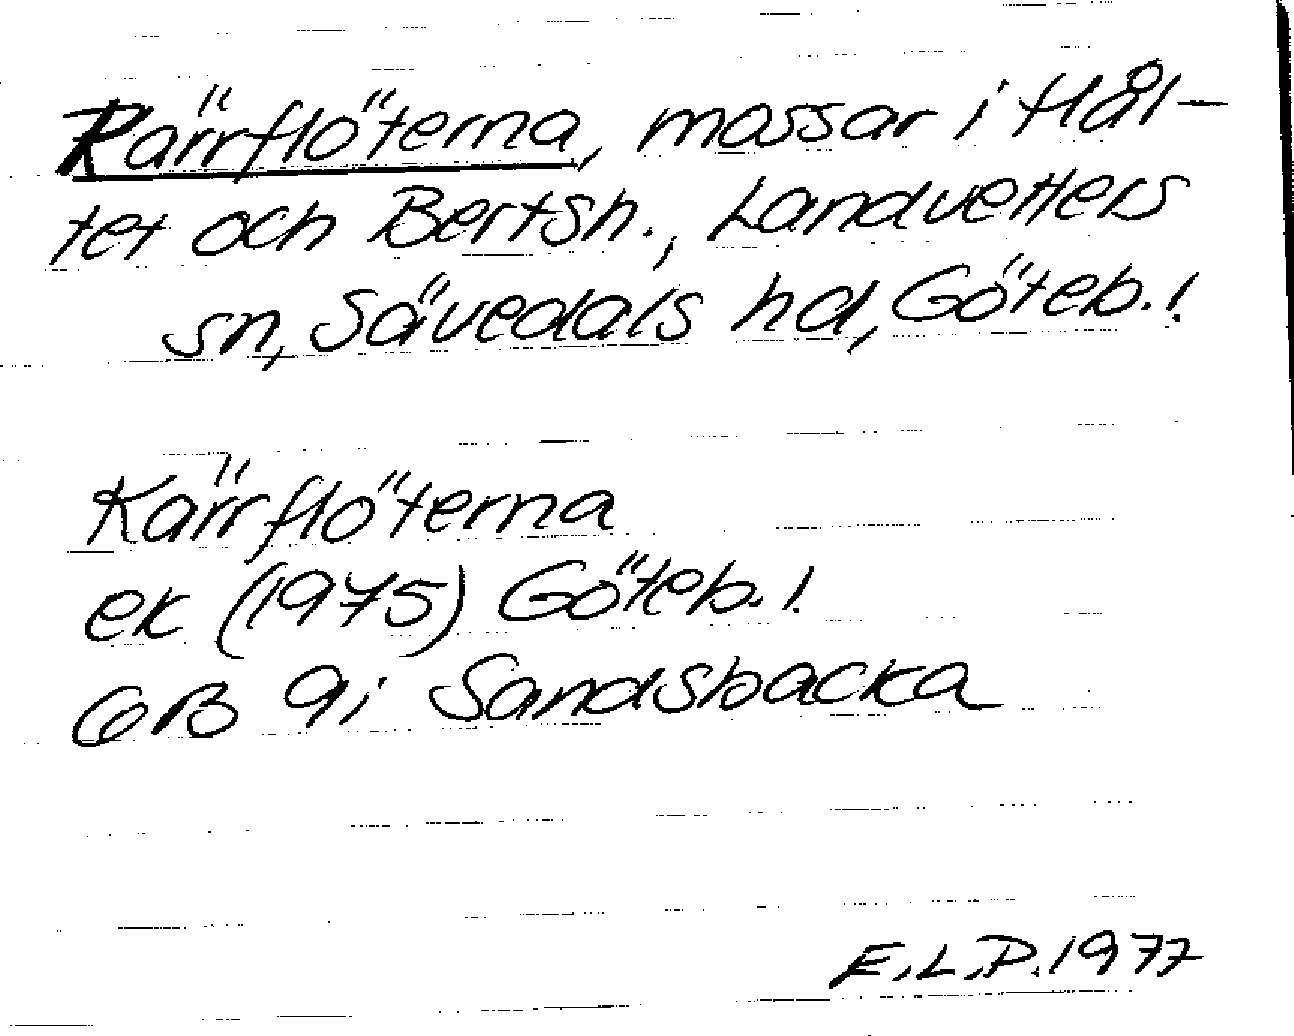 Rärrflöterna, mossar i Hål-
tet och Bertsh., Landvetters
sn, Sävedals hd, Göteb.!
Kärrflöterna
ek (1975) Göteb.!
GB 9i Sandsbacka
E.L.P. 1977